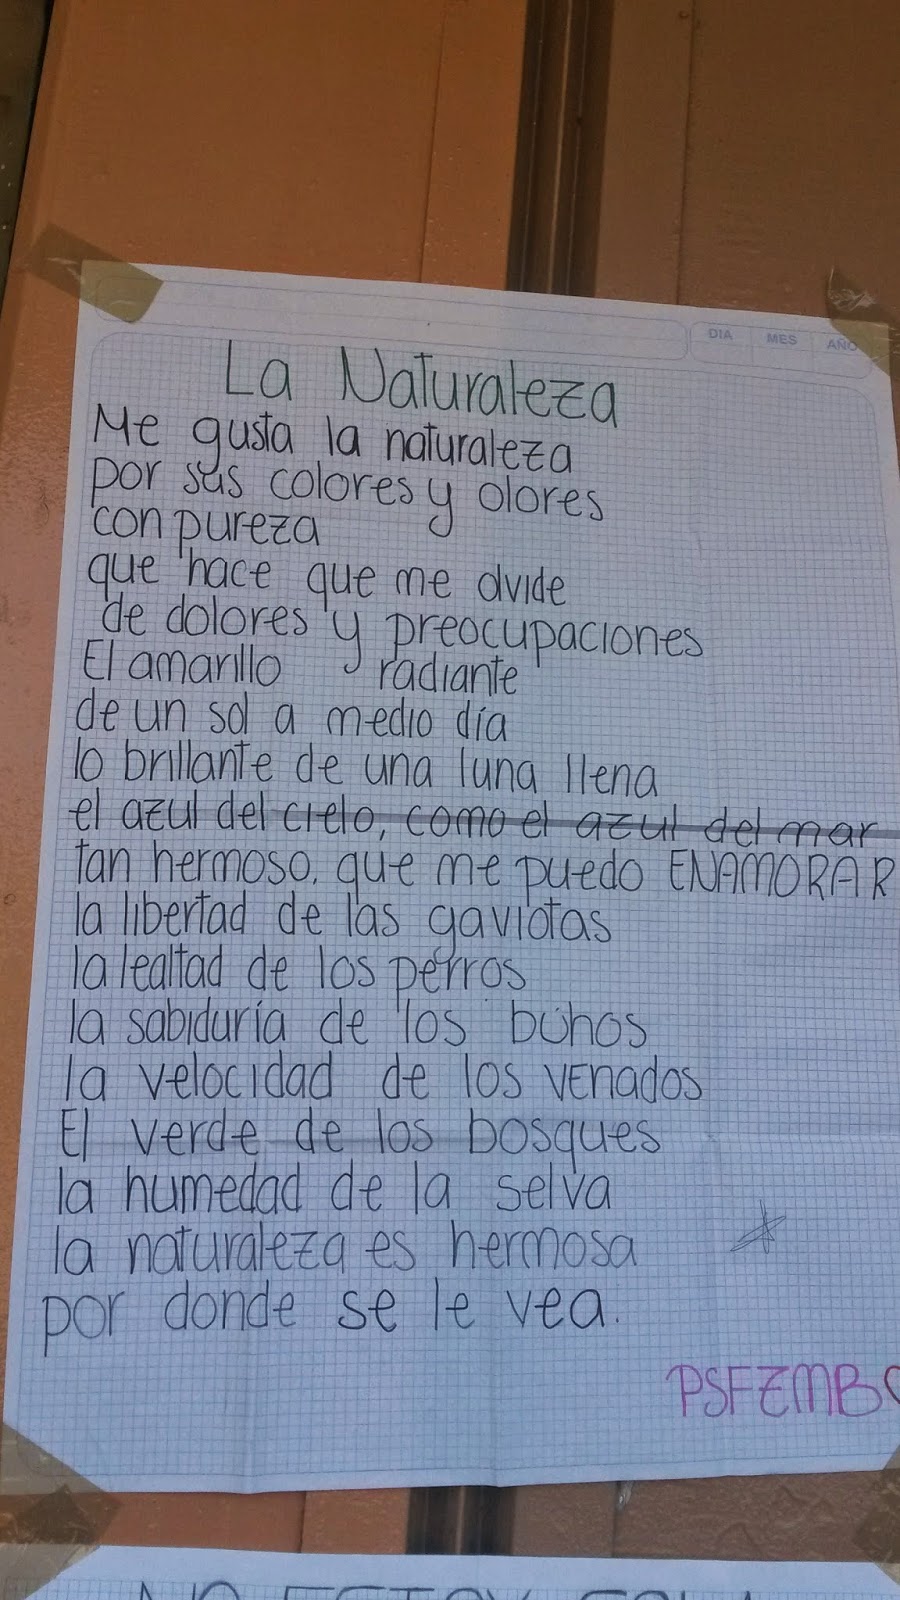 DIA MES AÑO
La Naturaleza
Me gusta la naturaleza
por sus colores y olores
con pureza
que hace que me olvide
de dolores y preocupaciones
El amarillo radiante
de un sol a medio día
lo brillante de una luna llena
el azul del cielo, como el azul del mar
tan hermoso, que me puedo ENAMORAR
la libertad de las gaviotas
la lealtad de los perros
la sabiduría de los búhos
la velocidad de los venados
El verde de los bosques
la humedad de la selva
la naturaleza es hermosa
por donde se le vea.
PSFZMB